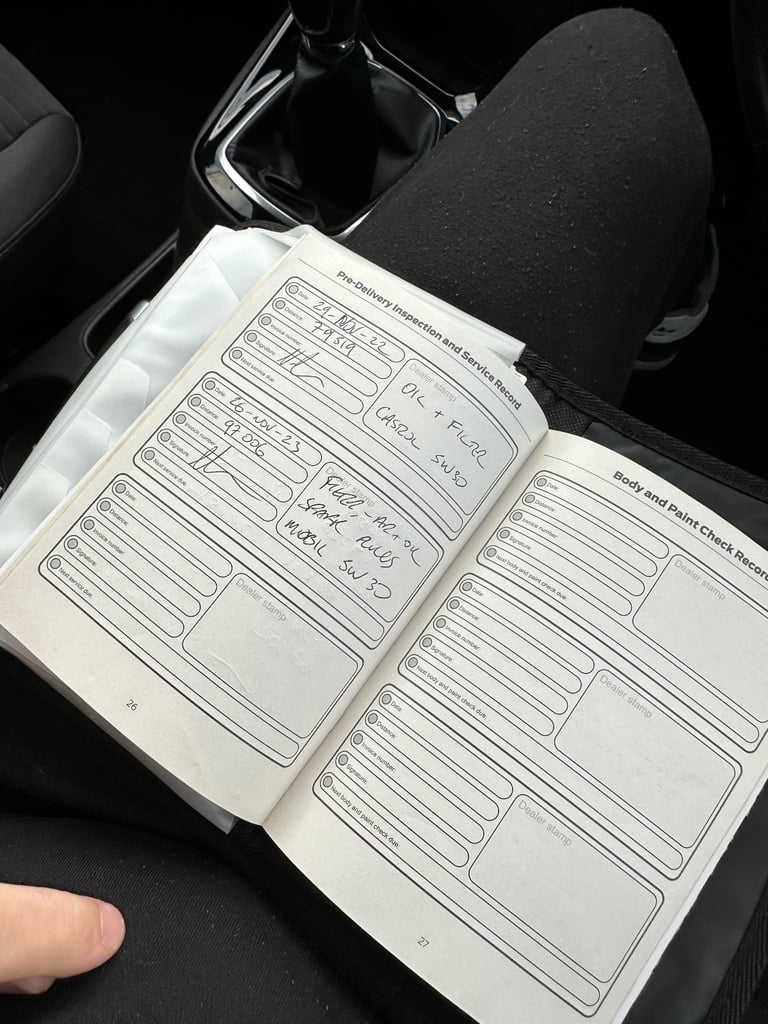 Pre-Delivery Inspection and Service Record
Date: 29-NOV-22
Distance: 79519
Invoice number:
Signature:
Next service due:
Dealer stamp
OIL + FILTER
CASTROL 5W30
Date: 26-NOV-23
Distance: 97006
Invoice number:
Signature:
Next service due:
Dealer stamp
FILTER, AIR + OIL
SPARK PLUGS
MOBIL 5W30
Date:
Distance:
Invoice number:
Signature:
Next service due:
Dealer stamp
26
Body and Paint Check Record
Date:
Distance:
Invoice number:
Signature:
Next body and paint check due:
Dealer stamp
Date:
Distance:
Invoice number:
Signature:
Next body and paint check due:
Dealer stamp
Date:
Distance:
Invoice number:
Signature:
Next body and paint check due:
Dealer stamp
27